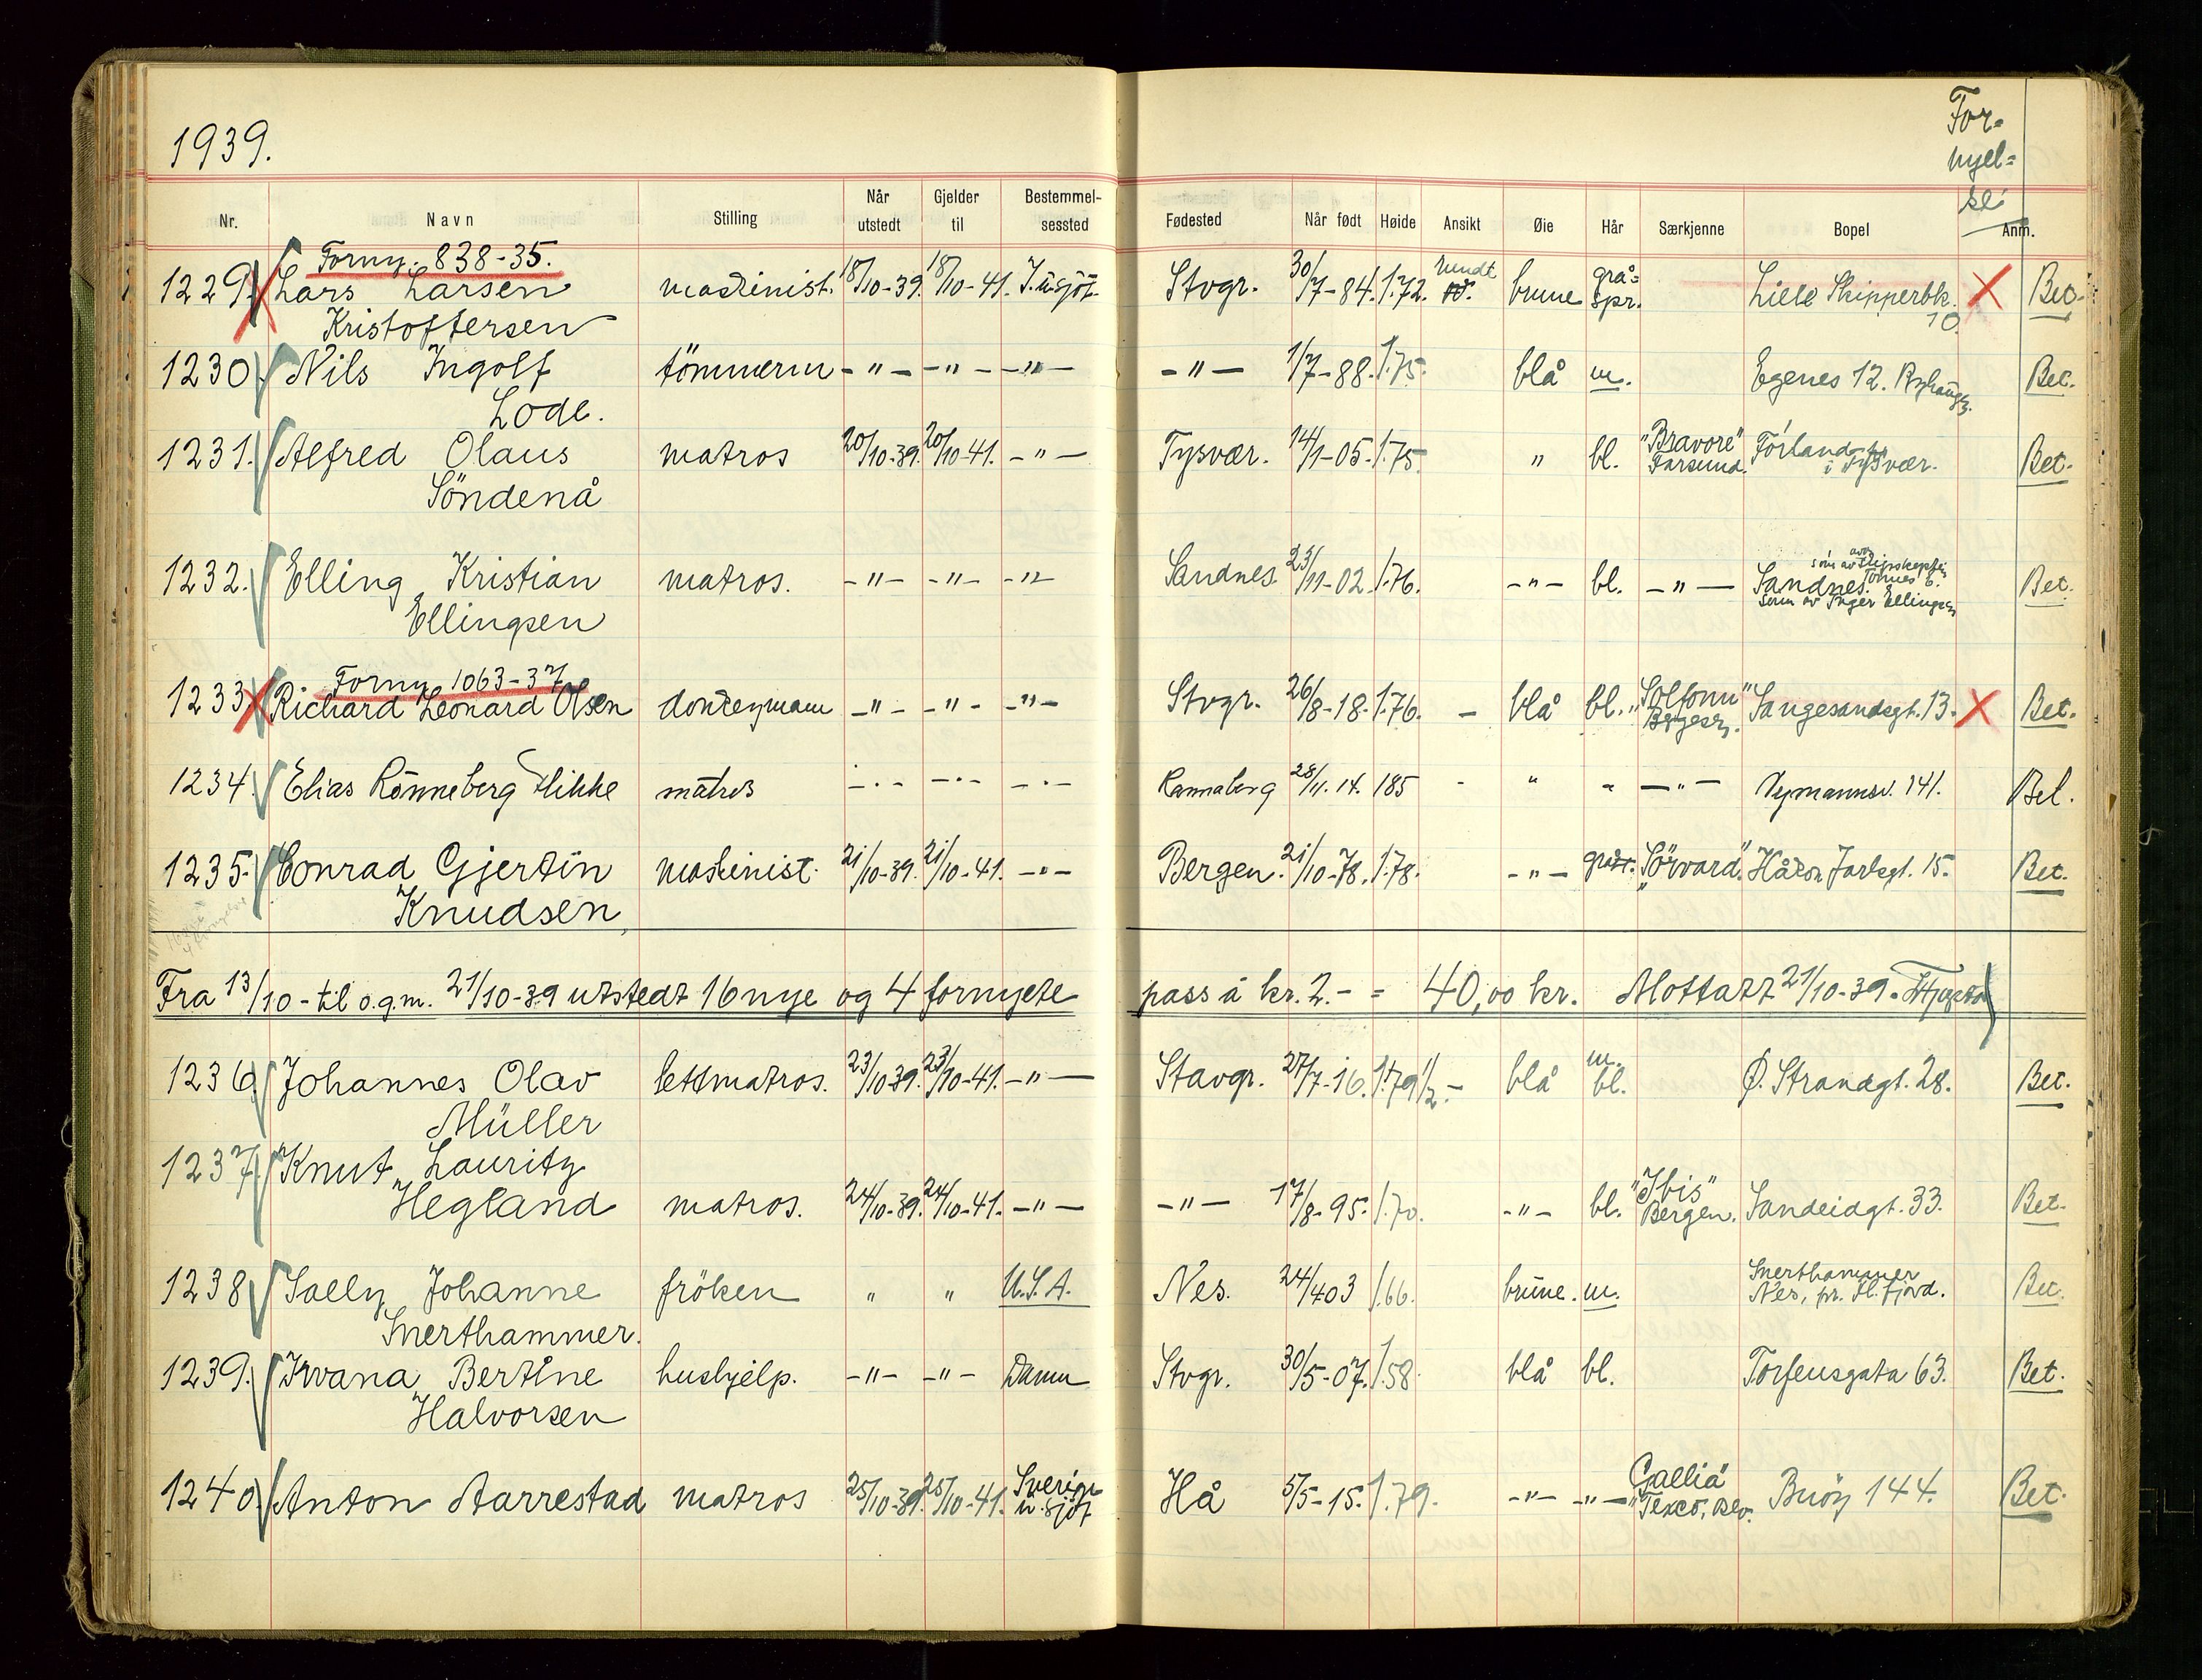 1939.
For-
nyel=
se:
Nr. Navn Stilling Når utstedt Gjelder til Bestemmel-sessted Fødested Når født Høide Ansikt Øie Hår Særkjenne Bopel Anm.
Forny. 838-35.
1229. Lars Larsen maskinist. 18/10-39. 18/10-41. T. o. sjöt. Stvgr. 30/7-84. 1.72. rundt brune grå=spr. Lille Skipperbk. 10. Bet.
Kristoffersen
1230 Nils Ingolf tömmerm - " - - " - - " - - " - 1/7-88. 1.75. blå m. Egenes 12. Bet.
Lode.
1231. Alfred Olaus matros 20/10-39. 20/10-41. - " - Tysvær. 14/1-05. 1.75. " bl. "Bravore" Farsund. Förland i Tysvær. Bet.
Söndenå
1232. Elling Kristian matros. - " - - " - - " - Sandnes 23/11-02. 1.76. - " - bl. - " - Sandnes. Bet.
sönn av Inger Ellingsen
Ellingsen
Forny 1063-37
1233 Richard Leonard Olsen donkeymann - " - - " - - " - Stvgr. 26/8-18. 1.76. - blå bl. "Solfonn" Bergesen. Langesandsgt. 13. Bet.
1234. Elias Rönneberg Hikke matros - " - - " - - " - Rannaberg 28/11. 14. 185 - " - - " - Nymannsv. 141. Bet.
1235. Conrad Gjertin maskinist. 21/10-39. 21/10-41. - " - Bergen. 21/10-78. 1.78. - " - "Sörvard." Håkon Jarlsgt. 15. Bet.
Knudsen,
Fra 13/10 - til o.g.m. 21/10-39 utstedt 16 nye og 4 fornyete pass á kr. 2.- = 40,00 kr. Mottatt 21/10-39.
1236. Johannes Olav lettmatros. 23/10-39. 23/10-41. - " - Stavgr. 27/7-16. 1.79 1/2. - blå m. bl. Ø. Strandgt. 28. Bet.
Müller
1237. Knut Lauritz
Hegland matros. 24/10-39. 24/10-41. - " - - " - 17/8-95. 1.70. - " - bl. "Ibis" Bergen. Sandeidgt. 33. Bet.
1238 Solly Johanne fröken " " U.S.A. Nes. 24/4 03 1.66. brune. m. Snerthammer Nes, pr. Hl. fjord. Bet.
Snerthammer.
1239. Irvana Bertine hushjelp. - " - - " - Danm Stvgr. 30/5-07. 1.58. blå bl. Torfeusgata 63. Bet.
Halvorsen
1240. Anton Aarrestad matros 25/10-39. 25/10-41. Sverige u. sjöt Hå 5/5-15. 1.79. - " - - " - "Gallia" Texco, Buöy 144. Bet.